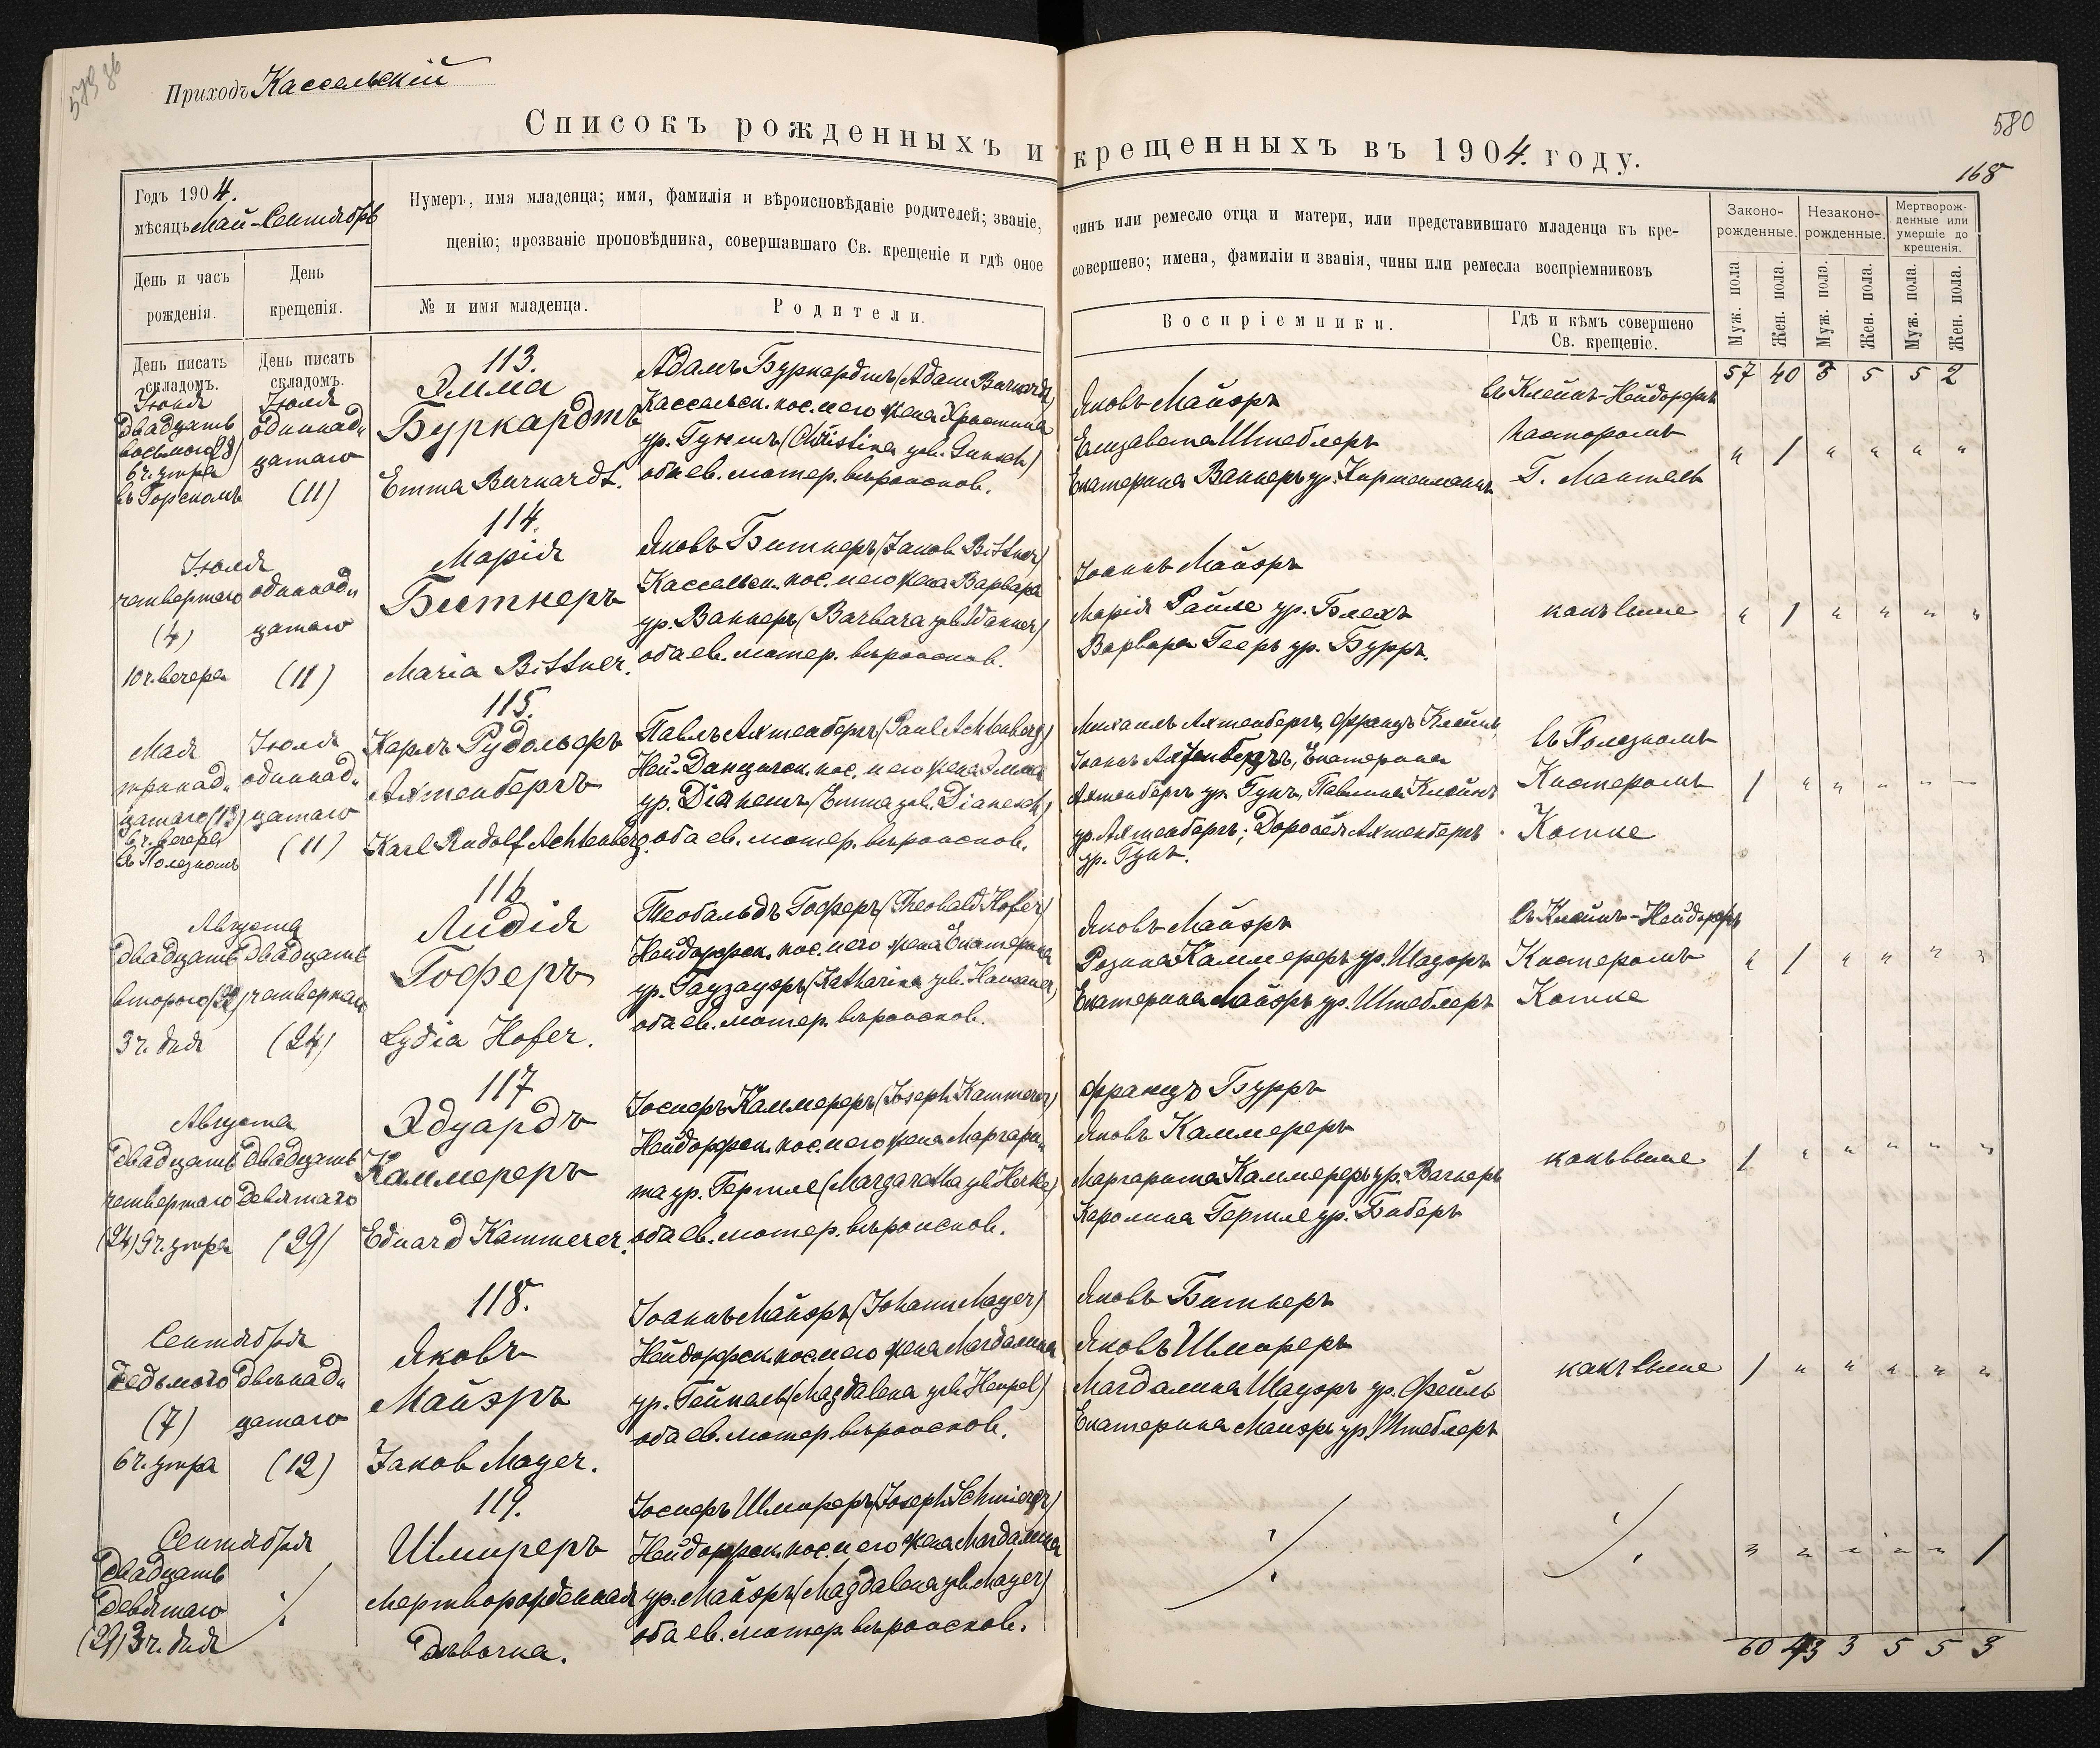 579 36
Приходъ Кассельскій
580
168
Списокъ рожденныхъ и крещенныхъ въ 1904. году.
Годъ 1904.
мѣсяцъ Май-Сентябрь
Нумеръ, имя младенца; имя, фамилія и вѣроисповѣданіе родителей; званіе, чинъ или ремесло отца и матери, или представившаго младенца къ кре-
щенію; прозваніе проповѣдника, совершавшаго Св. крещеніе и гдѣ оное совершено; имена, фамиліи и званія, чины или ремесла воспріемниковъ
Законо-рожденные.
Незаконо-рожденные.
Мертворож-денные или умершіе до крещенія.
День и часъ рожденія.
День крещенія.
№ и имя младенца.
Родители.
Воспріемники.
Гдѣ и кѣмъ совершено Св. крещеніе.
Муж. пола.
Жен. пола.
Муж. пола.
Жен. пола.
Муж. пола.
Жен. пола.
День писать складомъ.
День писать складомъ.
57 40 3 5 5 2
Іюня
двадцать
восьмого (28)
6 ч. утра
въ Горскомъ
Іюля
одиннад„
цатаго
(11)
113.
Эмма
Буркардтъ
Emma Burkardt.
Адамъ Буркардтъ (Adam Burkardt)
Кассельск. пос. и его жена Христина
ур. Гункшъ (Christina geb. Gunsch)
оба ев. лютер. вѣроисков.
Яковъ Майэръ
Елизавета Штеблеръ
Екатерина Ваннеръ ур. Киршенманъ
въ Клейнъ-Нейдорфѣ
пасторомъ
Г. Мантель
" 1 " " " "
Іюля
четвертаго
(4)
10 ч. вечера
одиннад„
цатаго
(11)
114.
Марія
Битнеръ
Maria Bittner.
Яковъ Битнеръ (Jakob Bittner)
Кассельск. пос. и его жена Варвара
ур. Ваннеръ (Barbara geb. Wanner)
оба ев. лютер. вѣроисков.
Іоаннъ Майэръ
Марія Райле ур. Блехъ
Варвара Гееръ ур. Бурръ.
какъ выше
" 1 " " " "
Мая
тринад„
цатаго (13)
6 ч. вечера
въ Полезномъ
Іюля
одиннад„
цатаго
(11)
115.
Карлъ Рудольфъ
Ахтенбергъ
Karl Rudolf Achtenberg.
Павлъ Ахтенбергъ (Paul Achtenberg)
Ней-Данцигск. пос. и его жена Эмма
ур. Діанешъ (Emma geb. Dianesch)
оба ев. лютер. вѣроисков.
Михаилъ Ахтенбергъ, Францъ Клейнъ,
Іоаннъ Ахтенбергъ, Екатерина
Ахтенбергъ ур. Гунъ, Павлина Клейнъ
ур. Ахтенбергъ; Доротея Ахтенбергъ
ур. Гунъ.
въ Полезномъ
Кистеромъ
Котке
1 " " " " "
Августа
двадцать
второго (22)
3 ч. дня
двадцать
четвертаго
(24)
116
Лидія
Гоферъ
Lydia Hofer.
Теобальдъ Гоферъ (Theobald Hofer)
Нейдорфск. пос. и его жена Екатерина
ур. Гаузауэръ (Katharina geb. Hausauer)
оба ев. лютер. вѣроисков.
Яковъ Майэръ
Розина Каммереръ ур. Шауэръ
Екатерина Майэръ ур. Штеблеръ
въ Клейнъ-Нейдорфѣ
Кистеромъ
Котке
" 1 " " " "
Августа
двадцать
четвертаго
(24) 9 ч. утра
двадцать
девятаго
(29)
117
Эдуардъ
Каммереръ
Eduard Kammerer.
Іосифъ Каммереръ (Joseph Kammerer)
Нейдорфск. пос. и его жена Маргари„
та ур. Гертле (Margaretha geb. Hertle)
оба ев. лютер. вѣроисков.
Францъ Бурръ
Яковъ Каммереръ
Маргарита Каммереръ ур. Вагнеръ
Каролина Гертле ур. Биберъ
какъ выше
1 " " " " "
Сентября
седьмого
(7)
6 ч. утра
двѣнад„
цатаго
(12)
118.
Яковъ
Майэръ
Jakob Mayer.
Іоаннъ Майэръ (Johann Mayer)
Нейдорфск. пос. и его жена Магдалина
ур. Гейпель (Magdalena geb. Heupel)
оба ев. лютер. вѣроисков.
Яковъ Битнеръ
Яковъ Шмиреръ
Магдалина Шауэръ ур. Фейль
Екатерина Майэръ ур. Штеблеръ
какъ выше
1 " " " " "
Сентября
двадцать
девятаго
(29) 3 ч. дня
119.
Шмиреръ
Мертворожденная
дѣвочка.
Іосифъ Шмиреръ (Joseph Schmierer)
Нейдорфск. пос. и его жена Магдалина
ур. Майэръ (Magdalena geb. Mayer)
оба ев. лютер. вѣроисков.
" " " " " 1
60 43 3 5 5 3